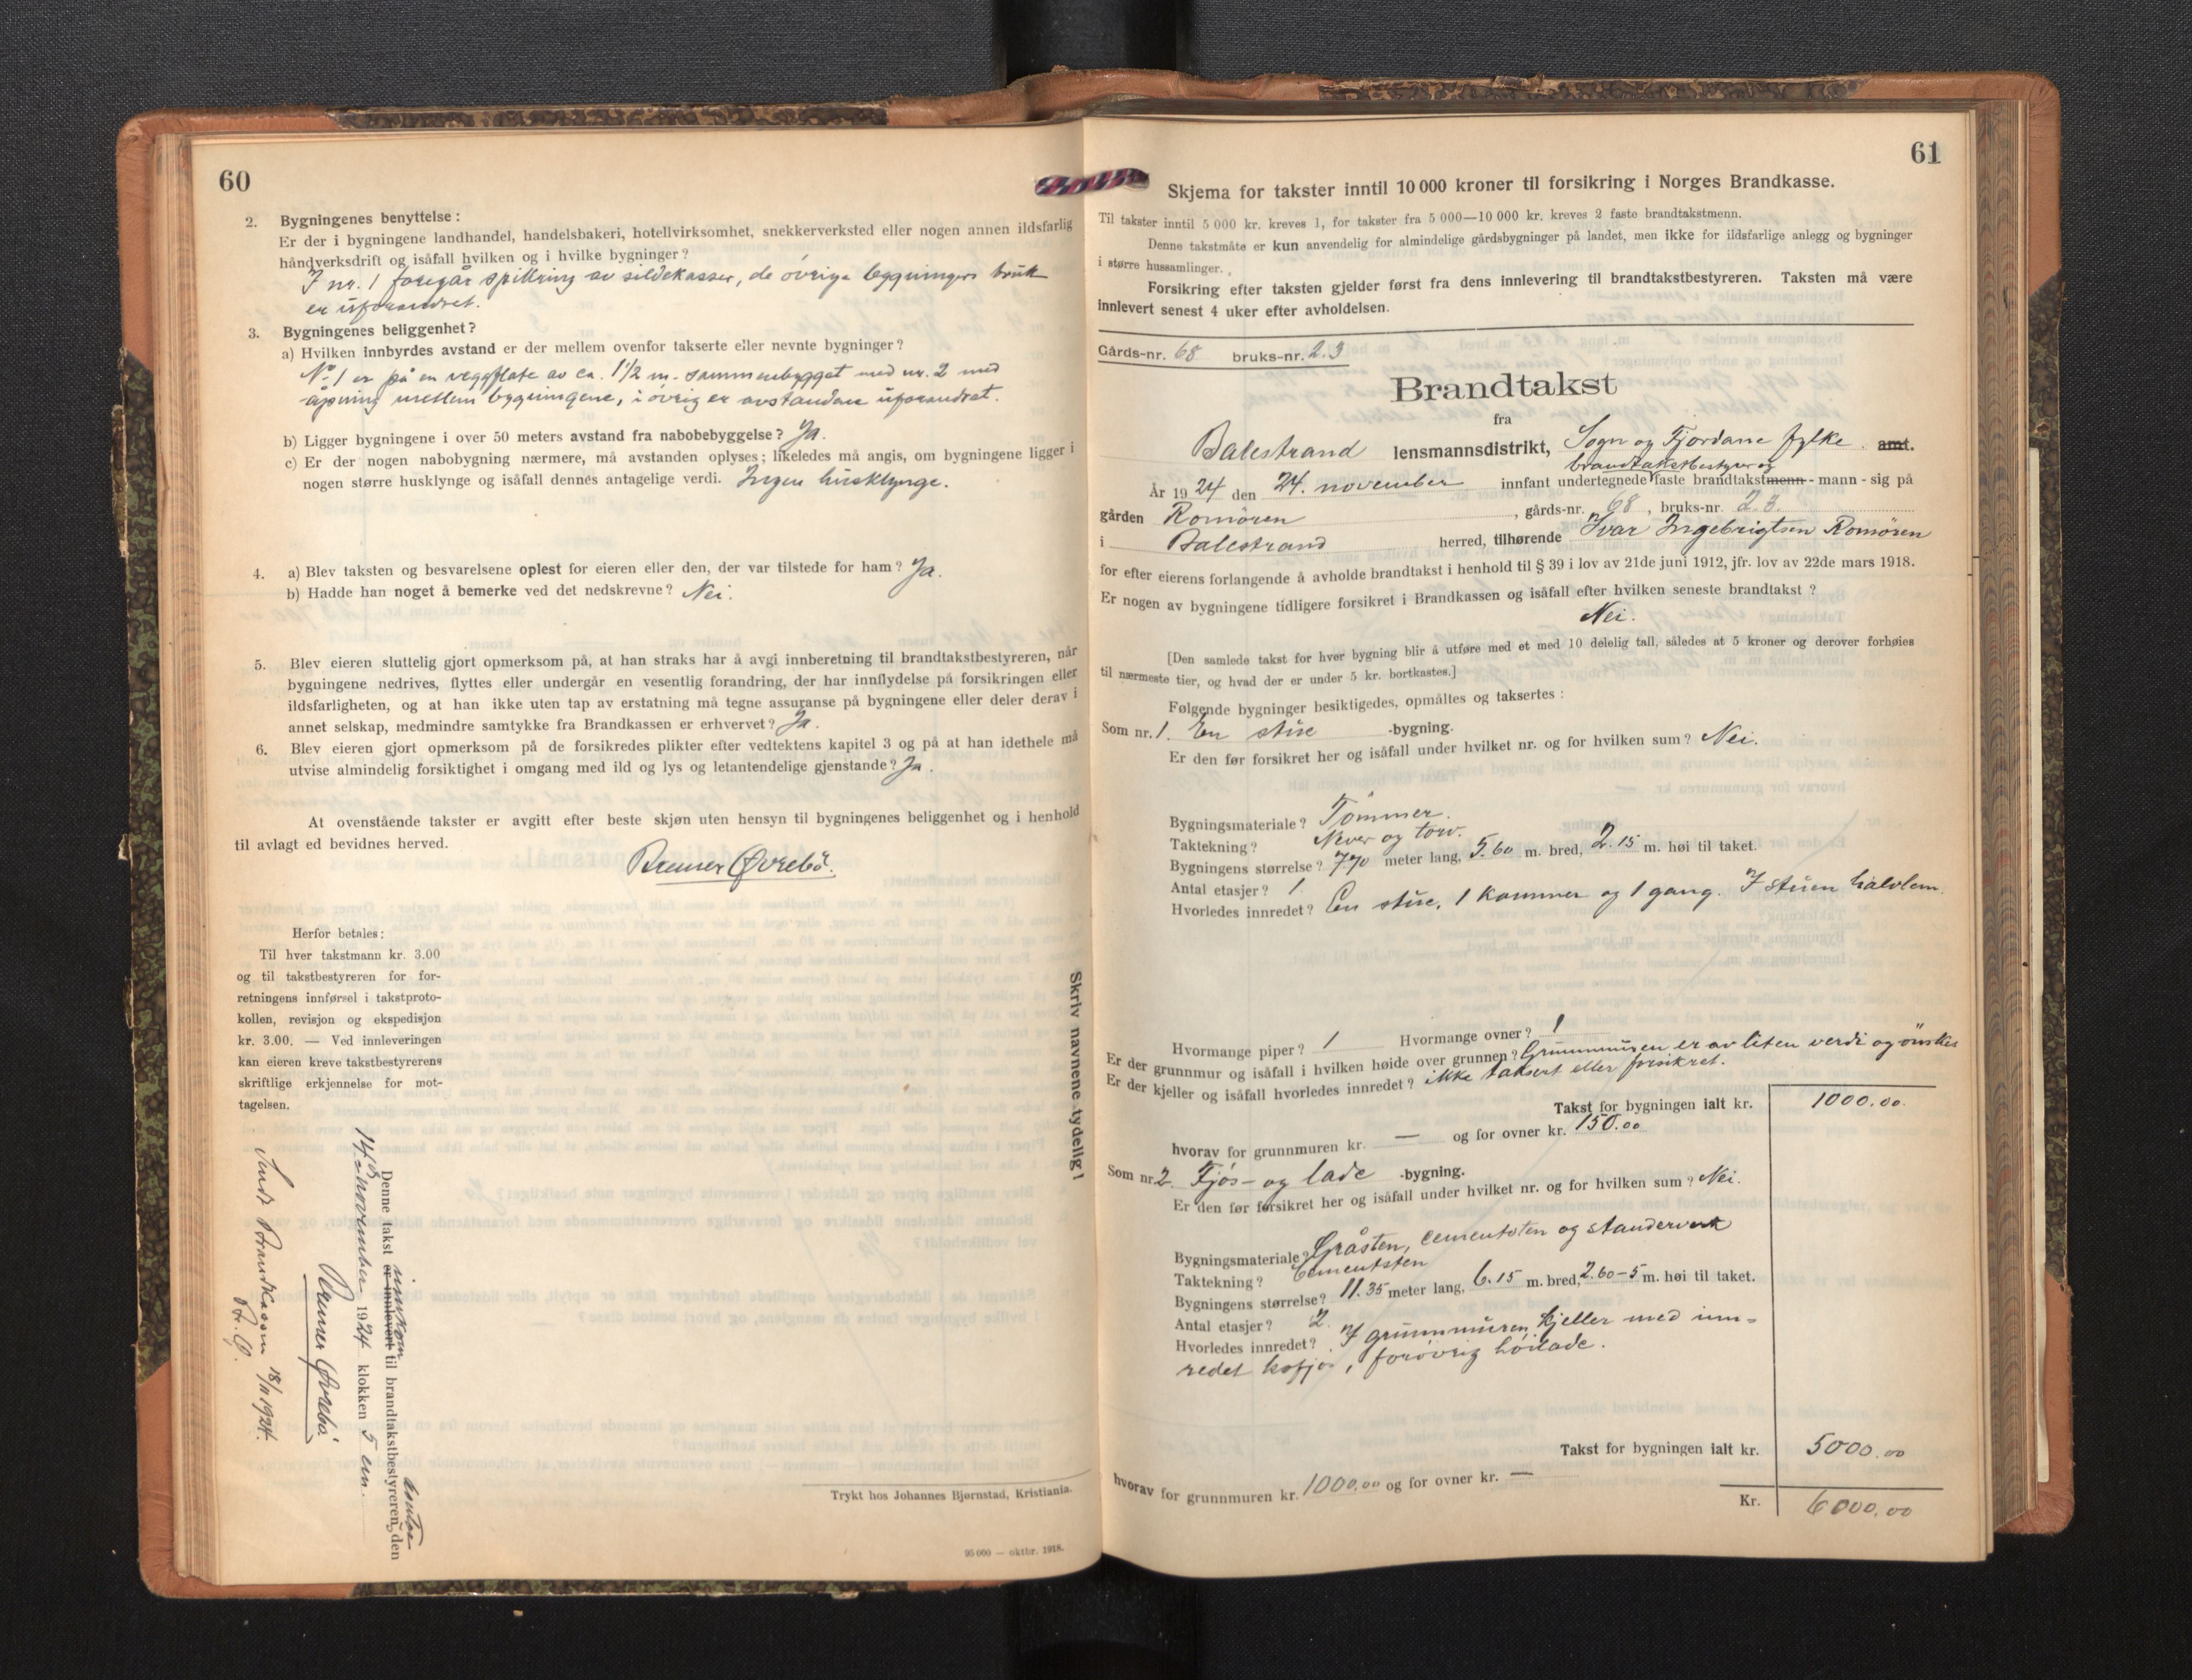 60
2. Bygningenes benyttelse:
Er der i bygningene landhandel, handelsbakeri, hotellvirksomhet, snekkerverksted eller nogen annen ildsfarlig
håndverksdrift og isåfall hvilken og i hvilke bygninger?
I nr. 1 foregår spikring av sildekasser, de övrige bygningers bruk
er uforandret.
3. Bygningenes beliggenhet?
a) Hvilken innbyrdes avstand er der mellem ovenfor takserte eller nevnte bygninger?
No 1 er på en veggflate av ca. 1 1/2 m. sammenbygget med nr. 2 med
åpning mellem bygningene, i övrig er avstanden uforandret.
b) Ligger bygningene i over 50 meters avstand fra nabobebyggelse? Ja.
c) Er der nogen nabobygning nærmere, må avstanden oplyses; likeledes må angis, om bygningene ligger i
nogen større husklynge og isåfall dennes antagelige verdi. Ingen husklynge.
4. a) Blev taksten og besvarelsene oplest for eieren eller den, der var tilstede for ham? Ja.
b) Hadde han noget å bemerke ved det nedskrevne? Nei.
5. Blev eieren sluttelig gjort opmerksom på, at han straks har å avgi innberetning til brandtakstbestyreren, når
bygningene nedrives, flyttes eller undergår en vesentlig forandring, der har innflydelse på forsikringen eller
ildsfarligheten, og at han ikke uten tap av erstatning må tegne assuranse på bygningene eller deler derav i
annet selskap, medmindre samtykke fra Brandkassen er erhvervet? Ja.
6. Blev eieren gjort opmerksom på de forsikredes plikter efter vedtektens kapitel 3 og på at han idethele må
utvise almindelig forsiktighet i omgang med ild og lys og letantendelige gjenstande? Ja.
At ovenstående takster er avgitt efter beste skjøn uten hensyn til bygningenes beliggenhet og i henhold
til avlagt ed bevidnes herved.
Øvrebö.
Herfor betales:
Til hver takstmann kr. 3.00
og til takstbestyreren for for-
retningens innførsel i takstproto-
kollen, revisjon og ekspedisjon
kr. 3.00. — Ved innleveringen
kan eieren kreve takstbestyrerens
skriftlige erkjennelse for mot-
tagelsen.
Skriv navnene tydelig!
Denne takst er innlevert innkom til brandtakstbestyreren den
14de november 1924 klokken 5 em.
Øvrebö
Sendt Brandkassen 18/11 1924.
Trykt hos Johannes Bjørnstad, Kristiania.
95 000 — oktbr. 1918.
61
Skjema for takster inntil 10 000 kroner til forsikring i Norges Brandkasse.
Til takster inntil 5 000 kr. kreves 1, for takster fra 5 000—10 000 kr. kreves 2 faste brandtakstmenn.
Denne takstmåte er kun anvendelig for almindelige gårdsbygninger på landet, men ikke for ildsfarlige anlegg og bygninger
i større hussamlinger.
Forsikring efter taksten gjelder først fra dens innlevering til brandtakstbestyreren. Taksten må være
innlevert senest 4 uker efter avholdelsen.
Gårds-nr. 68 bruks-nr. 2.3
Brandtakst
fra
Balestrand lensmannsdistrikt, Sogn og Fjordane fylke. amt.
brandtakstbestyrer og
År 1924 den 24. november innfant undertegnede faste brandtakstmenn - mann - sig på
gården Romören, gårds-nr. 68, bruks-nr. 2.3.
i Balestrand herred, tilhørende Ivar Ingebrigtsen Romören
for efter eierens forlangende å avholde brandtakst i henhold til § 39 i lov av 21de juni 1912, jfr. lov av 22de mars 1918.
Er nogen av bygningene tidligere forsikret i Brandkassen og isåfall efter hvilken seneste brandtakst?
Nei.
[Den samlede takst for hver bygning blir å utføre med et med 10 delelig tall, således at 5 kroner og derover forhøies
til nærmeste tier, og hvad der er under 5 kr. bortkastes.]
Følgende bygninger besiktigedes, opmåltes og taksertes:
Som nr. 1. En stue -bygning.
Er den før forsikret her og isåfall under hvilket nr. og for hvilken sum? Nei.
Bygningsmateriale? Tömmer.
Taktekning? Never og torv.
Bygningens størrelse? 7.70 meter lang, 5.60 m. bred, 2.15 m. høi til taket.
Antal etasjer? 1.
Hvorledes innredet? En stue, 1 kammer og 1 gang. I stuen halvlem.
Hvormange piper? 1 Hvormange ovner? 1
Er der grunnmur og isåfall i hvilken høide over grunnen? Grunnmuren er av liten verdi og önskes
Er der kjeller og isåfall hvorledes innredet? ikke taksert eller forsikret.
Takst for bygningen ialt kr. 1000.00.
hvorav for grunnmuren kr. — og for ovner kr. 150.00
Som nr. 2. Fjös- og lade -bygning.
Er den før forsikret her og isåfall under hvilket nr. og for hvilken sum? Nei.
Bygningsmateriale? Gråsten, cementsten og standerverk
Taktekning? Cementsten
Bygningens størrelse? 11.35 meter lang, 6.15 m. bred, 2.60-5 m. høi til taket.
Antal etasjer? 2.
Hvorledes innredet? I grunnmuren kjeller med inn-
redet kofjös, forövrig höilade.
Takst for bygningen ialt kr. 5000.00
hvorav for grunnmuren kr. 1000.00 og for ovner kr. —
Kr. 6000.00